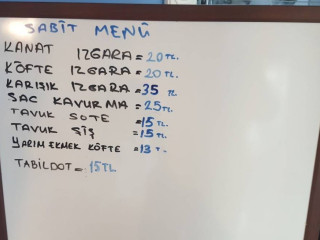 SABİT MENÜ
KANAT IZGARA = 20 TL.
KÖFTE IZGARA = 20 TL.
KARIŞIK IZGARA = 35 TL
SAC KAVURMA = 25 TL.
TAVUK SOTE = 15 TL.
TAVUK ŞİŞ = 15 TL.
YARIM EKMEK KÖFTE = 13 T.
TABİLDOT = 15 TL